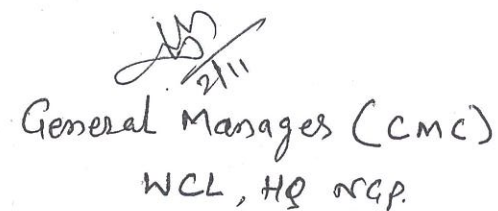 2/11
General Manager (CMC)
WCL, HQ NGP.